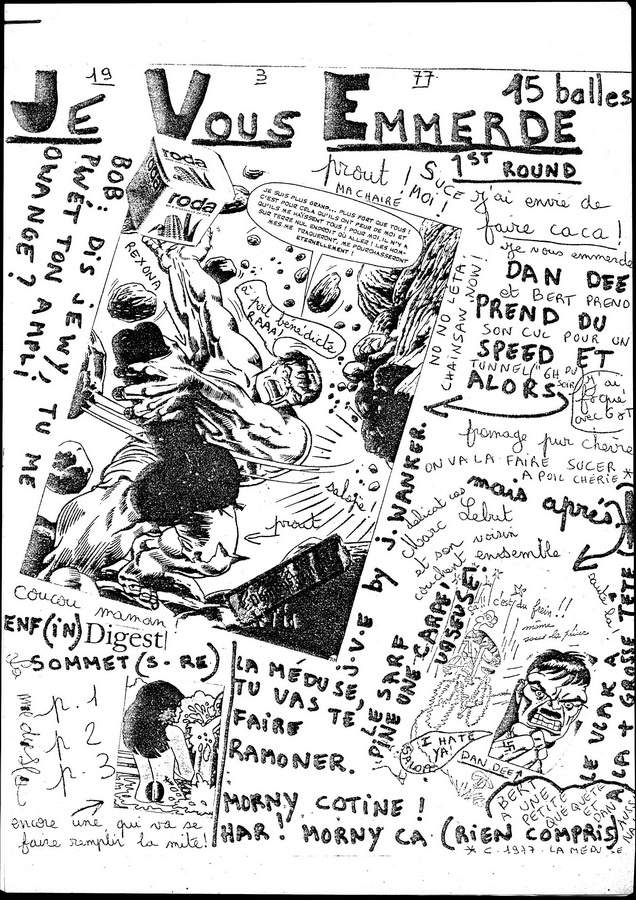 19 3 77
JE VOUS EMMERDE
15 balles
1ST ROUND
BOB: DIS JEWY, TU ME
PWÊT TON AMPLI
OWANGE?
roda
roda
REXONA
JE SUIS PLUS GRAND... PLUS FORT QUE TOUS !
C'EST POUR CELA QU'ILS ONT PEUR DE MOI ET
QU'ILS ME HAÏSSENT TOUS ! POUR MOI, IL N'Y A
SUR TERRE NUL ENDROIT OÙ ALLER ! LES HOM-
MES ME TRAQUERONT, ME POURCHASSERONT
ETERNELLEMENT !
à poil bénédicte
RAAA!
prout !
MA CHAIRE
SUCE
MOI !
j'ai envie de
faire caca !
je vous emmerde
DAN DEE
et BERT PREND
PREND DU
SON CUL POUR UN
SPEED ET
TUNNEL" 6H DU
SOIR
ALORS
j'ai
avec GOT
NO NO LETA
CHAINSAW NOW!
fromage pur chèvre
ON VA LA FAIRE SUCER
A POIL CHÉRIE *
mais après
délicat cas
Marc Lebut
et son voisin
coulent ensemble
salope !
prout
J.V.E by J. WANKER.
coucou maman !
ENF(IN) Digest
SOMMET(S-RE)
La méduse
p. 1
p. 2
p. 3
encore une qui va se
faire remplir la mite!
LA MÉDUSE,
TU VAS TE
FAIRE
RAMONER.
MORNY COTINE !
HAR! MORNY CA (RIEN COMPRIS)
LE SARF
PINE UNE CARPE!
VOSEUSE!
c'est du frein !!
même
sous la pluie
I HATE
YA!
SALOP
DAN DEE
LE VLAK A
A LA + GROSSE TÊTE
BERT
A UNE
PETITE
QUEQUETTE
ET
DAN
* C. 1977. LA MÉDUSE